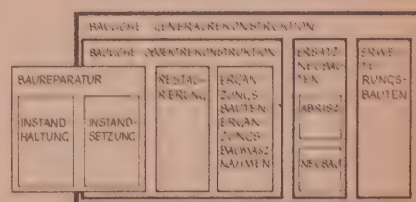 BAULICHE GENERALREKONSTRUKTION
BAULICHE REKONSTRUKTION
BAUREPARATUR
INSTAND-
HALTUNG
INSTAND-
SETZUNG
RESTAU-
RIERUNG
ERGÄN
ZUNGS
BAUTEN
ERGÄN
ZUNGS
BAUMASZ
NAHMEN
ERSATZ
NEUBAU
TEN
ABRISZ
NEUBAU
ERWEI
TE
RUNGS-
BAUTEN